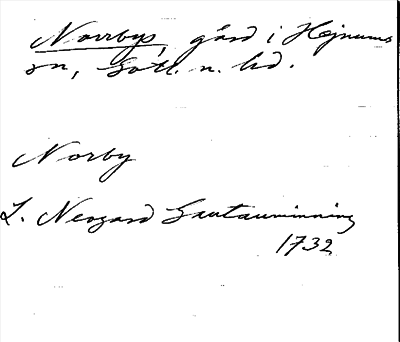 Norrbys, gård i Hejnums
sn, Gotl. n. hd.
Norby
L. Neogard Gautauminning
1732